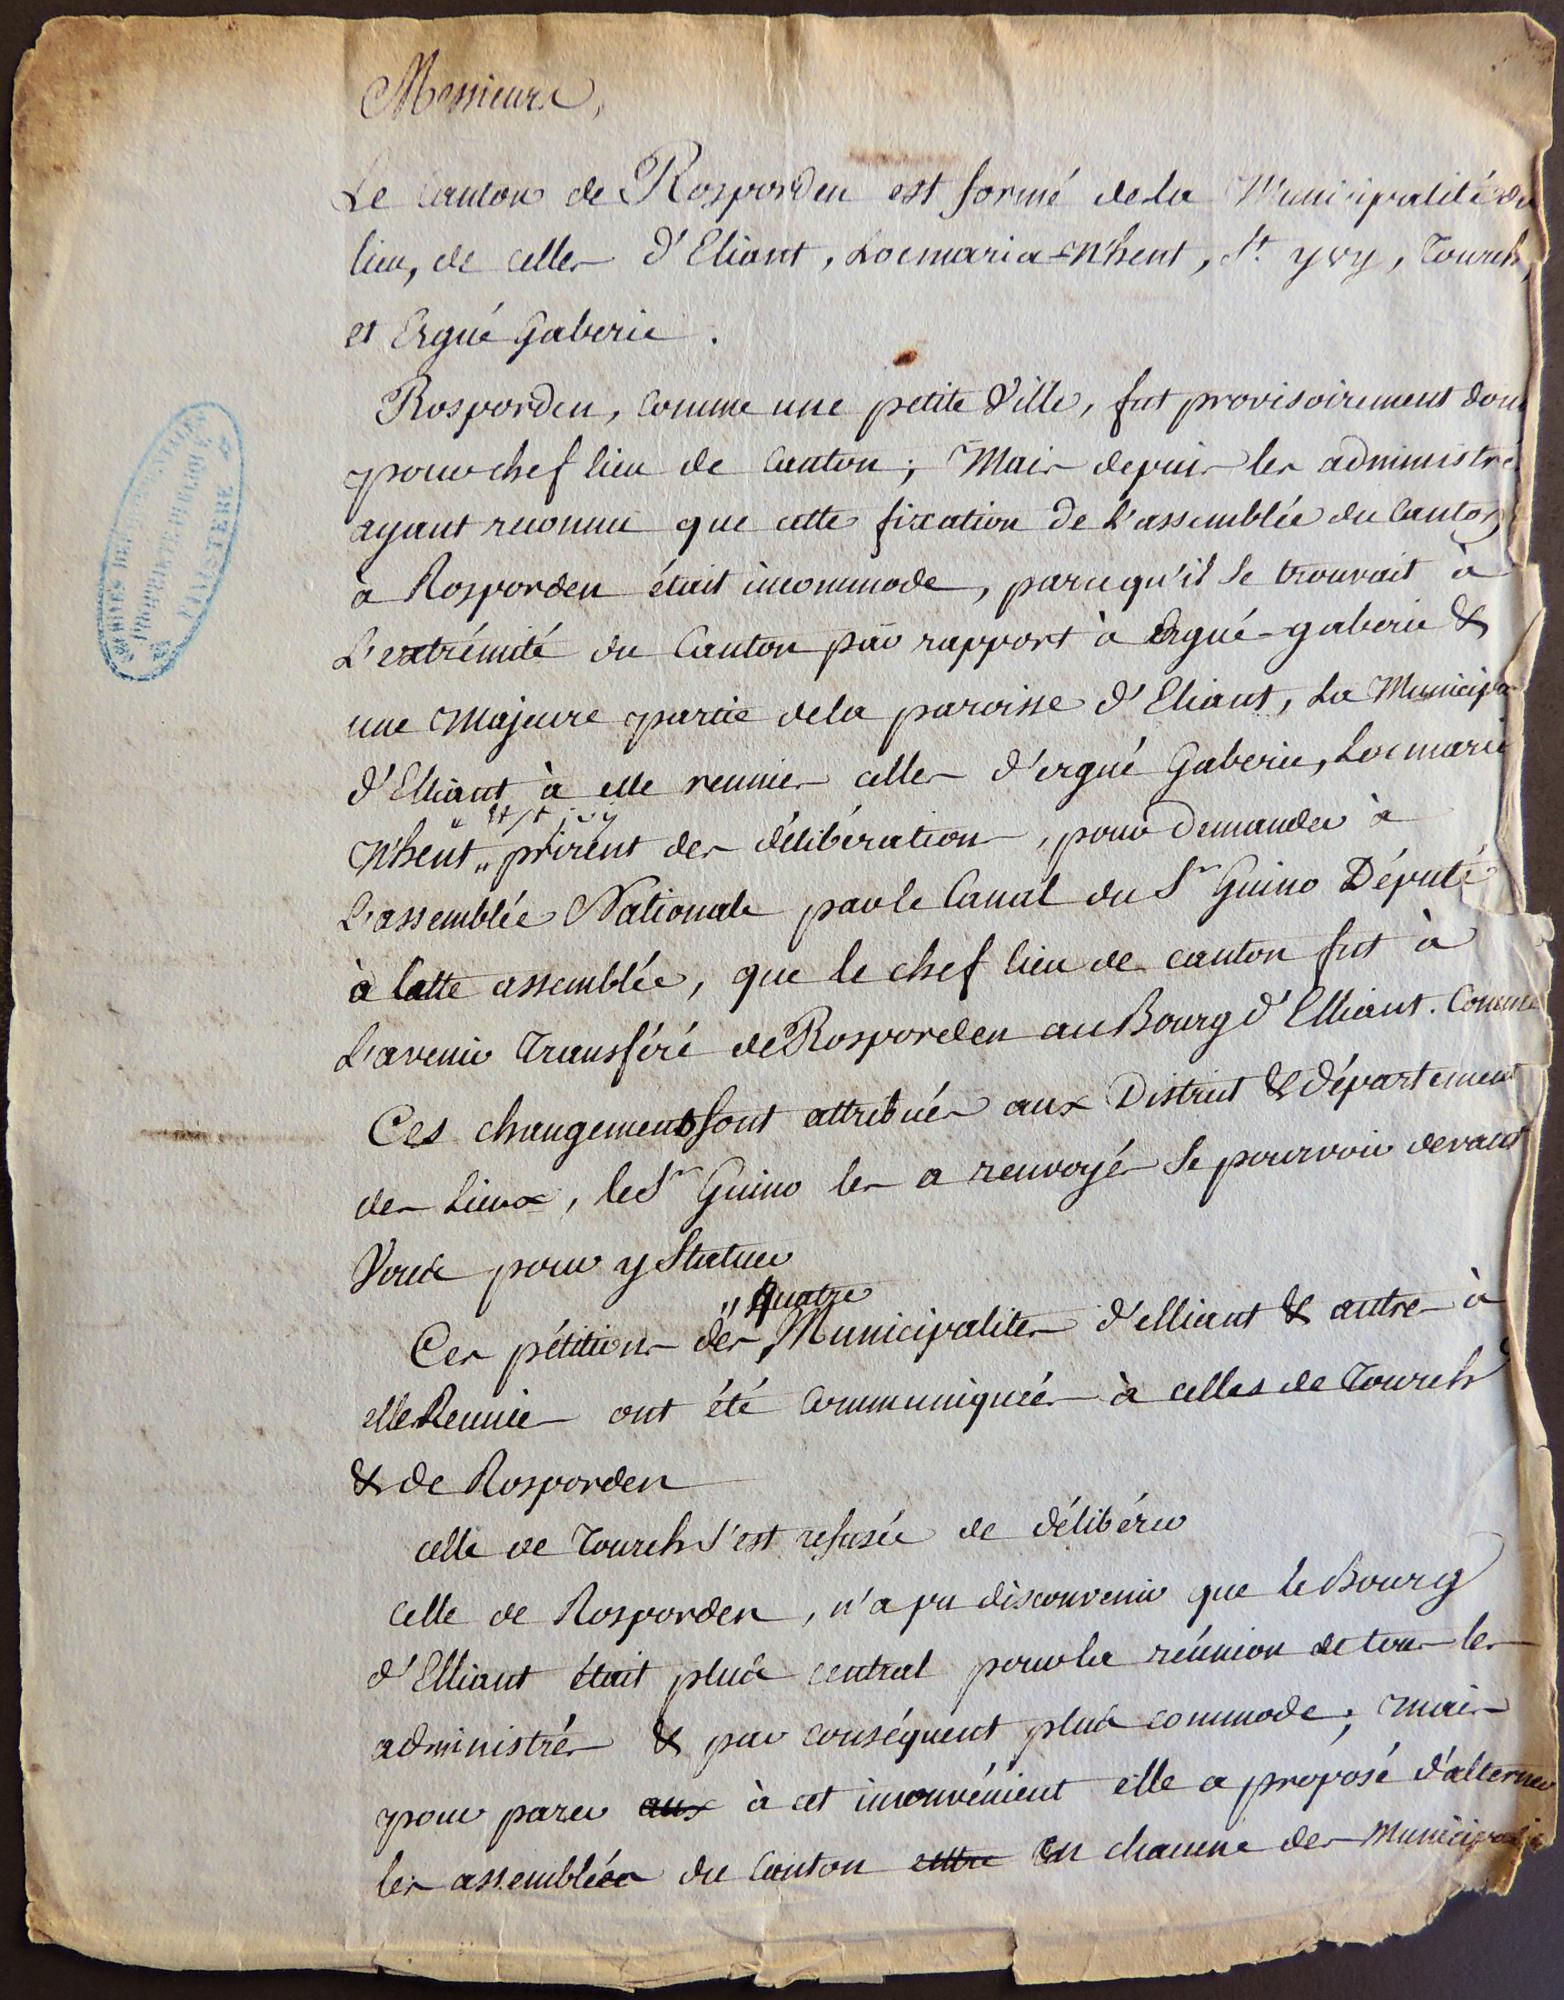 Messieurs,
Le Canton de Rosporden est formé de la Municipalité du
lieu, de celles d'Eliant, Locmaria-N'hent, St yvy, Tourch,
et Ergué Gaberic.
Rosporden, comme une petite Ville, fut provisoirement
pour chef lieu de Canton; Mais depuis les administrés
ayant reconnu que cette fixation de L'assemblée du Canton
à Rosporden était incommode, parcequ'il se trouvait à
L'extrémité du Canton par rapport à Ergué-gaberic &
une Majeure partie de la paroisse d'Eliant, La
d'Elliant à elle reunies celles d'ergué Gaberic, Locmaria
" et st ivy
N'hent " prirent des délibérations, pour demander à
L'assemblée Nationale par le Canal du Sr Guino Député
à Cette assemblée, que le chef lieu de canton fut à
L'avenir Transféré de Rosporden au Bourg d'Elliant. Comme
Ces changements sont attribués aux District & département
des Lieux, le Sr Guino les a renvoyés se pourvoir devant
Vous pour y Statuer
" quatre
Ces pétitions des " Municipalites d'elliant & autres à
elle Reunies ont été Communiquées à celles de Tourch
& de Rosporden
celle de Tourch s'est refusée de délibérer
celle de Rosporden, n'a pu disconvenir que le Bourg
d'Elliant était plus central pour la réunion de tous les
administrés & par conséquent plus commode; mais
pour parer aux à cet inconvénient elle a proposé d'alterner
les assemblées du Canton entre en chacune des